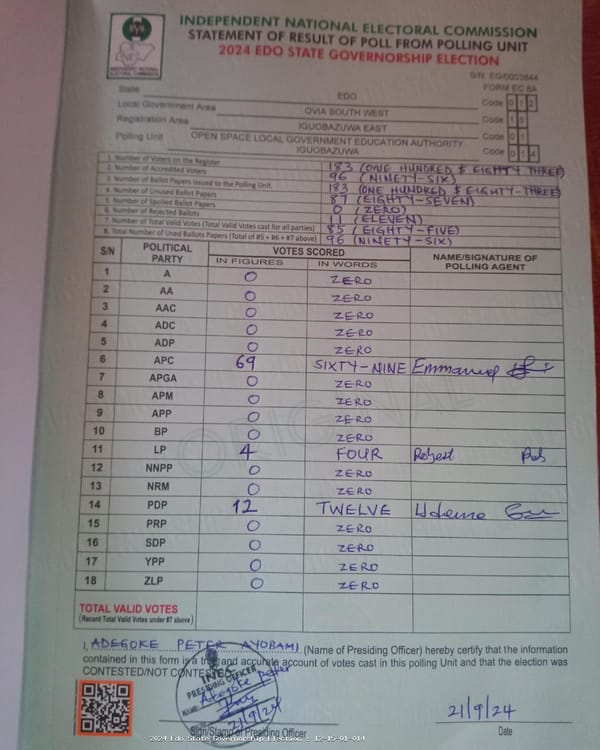 INDEPENDENT NATIONAL ELECTORAL COMMISSION
STATEMENT OF RESULT OF POLL FROM POLLING UNIT
2024 EDO STATE GOVERNORSHIP ELECTION
INDEPENDENT NATIONAL ELECTORAL COMMISSION
S/N: EG/0003844
FORM EC 8A
State EDO Code 0 1 2
Local Government Area OVIA SOUTH WEST Code 1 5
Registration Area IGUOBAZUWA EAST Code 0 1
Polling Unit OPEN SPACE LOCAL GOVERNMENT EDUCATION AUTHORITY IGUOBAZUWA Code 0 1 4
1. Number of Voters on the Register 183 (ONE HUNDRED & EIGHTY THREE)
2. Number of Accredited Voters 96 (NINETY-SIX)
3. Number of Ballot Papers Issued to the Polling Unit 183 (ONE HUNDRED & EIGHTY-THREE)
4. Number of Unused Ballot Papers 87 (EIGHTY-SEVEN)
5. Number of Spoiled Ballot Papers 0 (ZERO)
6. Number of Rejected Ballots 11 (ELEVEN)
7. Number of Total Valid Votes (Total Valid Votes cast for all parties) 85 (EIGHTY-FIVE)
8. Total Number of Used Ballots Papers (Total of #5 + #6 + #7 above) 96 (NINETY-SIX)
S/N POLITICAL PARTY VOTES SCORED NAME/SIGNATURE OF POLLING AGENT
IN FIGURES IN WORDS
1 A 0 ZERO
2 AA 0 ZERO
3 AAC 0 ZERO
4 ADC 0 ZERO
5 ADP 0 ZERO
6 APC 69 SIXTY-NINE Emmanuel
7 APGA 0 ZERO
8 APM 0 ZERO
9 APP 0 ZERO
10 BP 0 ZERO
11 LP 4 FOUR
12 NNPP 0 ZERO
13 NRM 0 ZERO
14 PDP 12 TWELVE
15 PRP 0 ZERO
16 SDP 0 ZERO
17 YPP 0 ZERO
18 ZLP 0 ZERO
ORIGINAL
TOTAL VALID VOTES
(Record Total Valid Votes under #7 above)
I, ADEGOKE PETER AYOBAMI (Name of Presiding Officer) hereby certify that the information
contained in this form is a true and accurate account of votes cast in this polling Unit and that the election was
CONTESTED/NOT CONTESTED
INEC
PRESIDING OFFICER
NAME: Adegoke Peter
21/9/24
Sign/Stamp of Presiding Officer
21/9/24
Date
2024 Edo State Governorship Election - 12-15-01-014